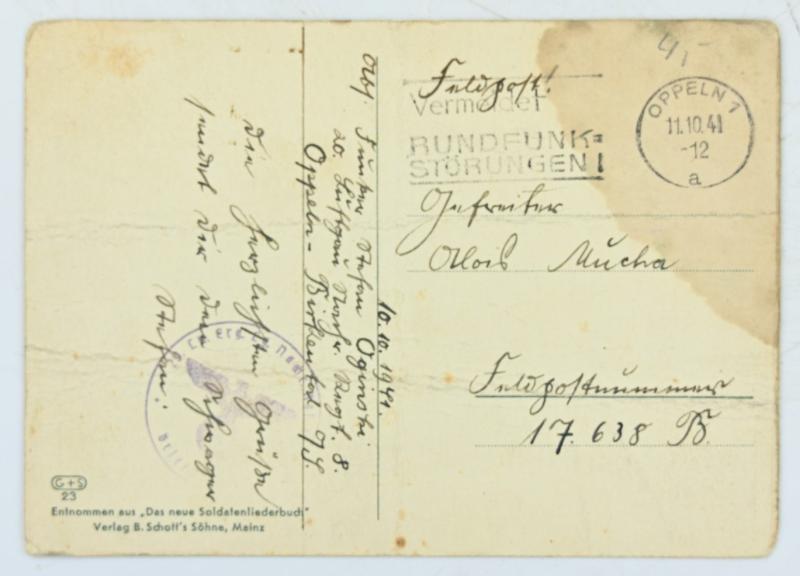 Feldpost!
Vermeidet
RUNDFUNK=
STÖRUNGEN!
OPPELN 1
11.10.41
-12
a
Gefreiter
Alois Mucha
Feldpostnummer
17.638 B.
10.10.1941.
Abs. Funker Stefan Oginski
20. Luftgau Nachr. Rgt. 8.
Oppeln-Birkental O/S.
Die herzlichsten Grüße
sendet dir dein Schwager
Stefan.
G+S
23
Entnommen aus „Das neue Soldatenliederbuch"
Verlag B. Schott's Söhne, Mainz